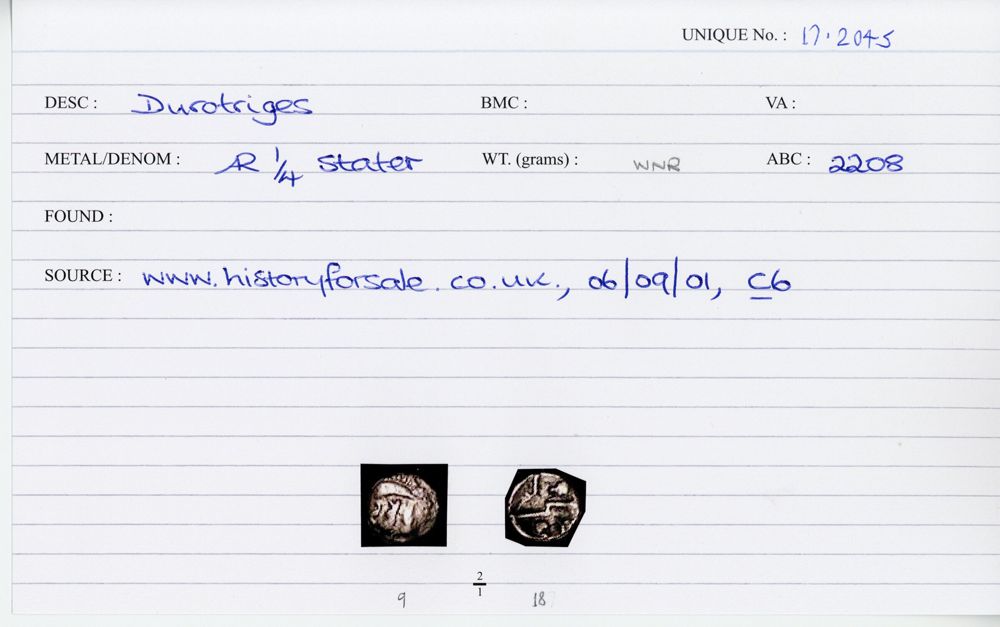 UNIQUE No. : 17.2045
DESC : Durotriges BMC : VA :
METAL/DENOM : AR 1/4 stater WT. (grams) : WNR ABC : 2208
FOUND :
SOURCE : www.historyforsale.co.uk., 06/09/01, C6
2/1
9 18